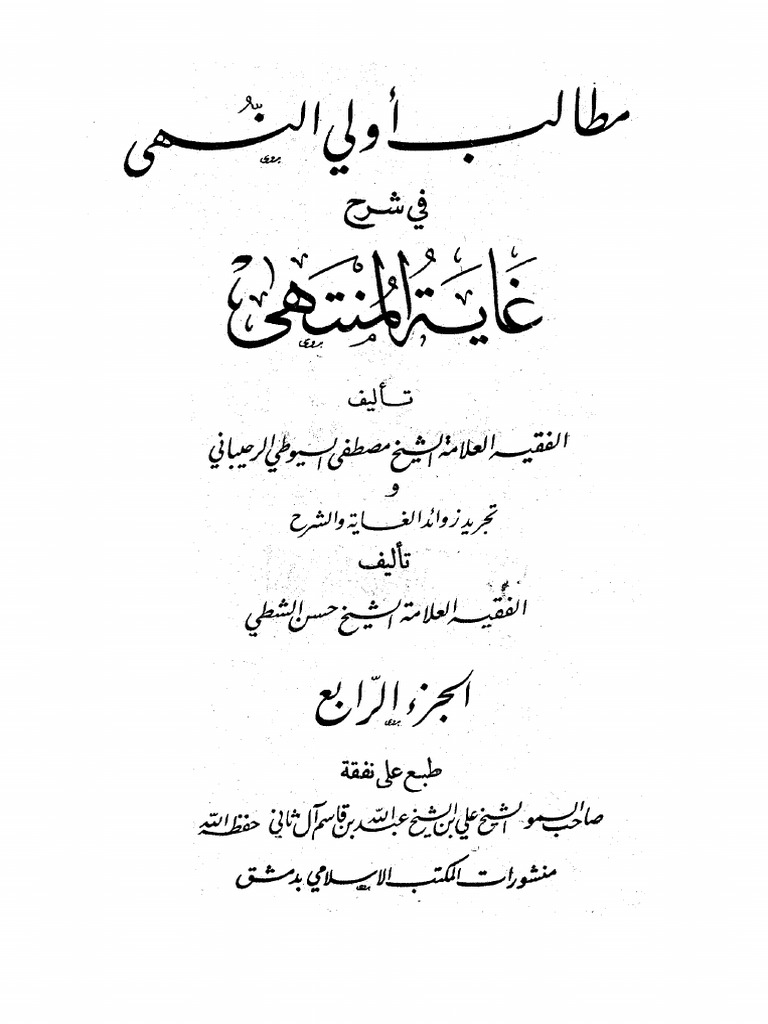 مطالب أولي النُّهى
في شرح
غَايَة المُنتَهى
تأليف
الفقيه العلامة الشيخ مصطفى السيوطي الرحيباني
و
تجريد زوائد الغاية والشرح
تأليف
الفقيه العلامة الشيخ حسن الشطي
الجزء الرّابع
طبع على نفقة
صاحب السمو الشيخ علي بن الشيخ عبد الله بن قاسم آل ثاني حفظه الله
منشورات المكتب الإسلامي بدمشق